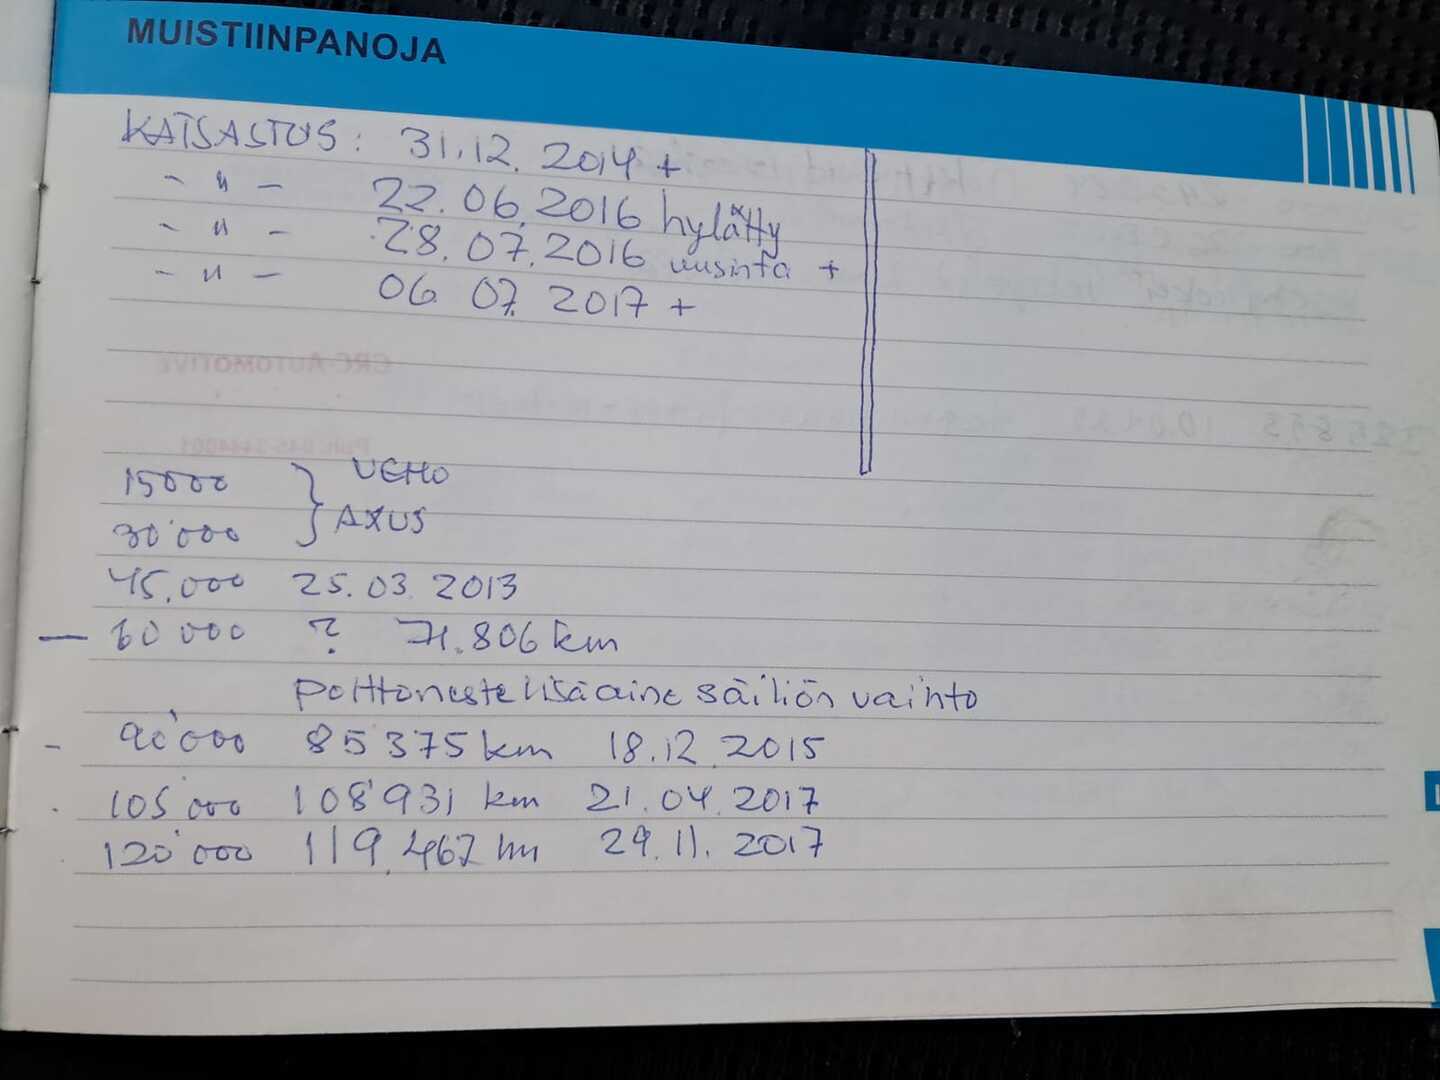 MUISTIINPANOJA
KATSASTUS: 31.12.2014 +
- " - 22.06.2016 hylätty
- " - 28.07.2016 uusinta +
- " - 06.07.2017 +
15000 } VEHO
30'000 } AXUS
45.000 25.03.2013
— 60'000 ? 71.806 km
polttoneste lisäaine säiliön vaihto
- 90'000 85375 km 18.12.2015
105'000 108'931 km 21.04.2017
120'000 119.467 km 29.11.2017